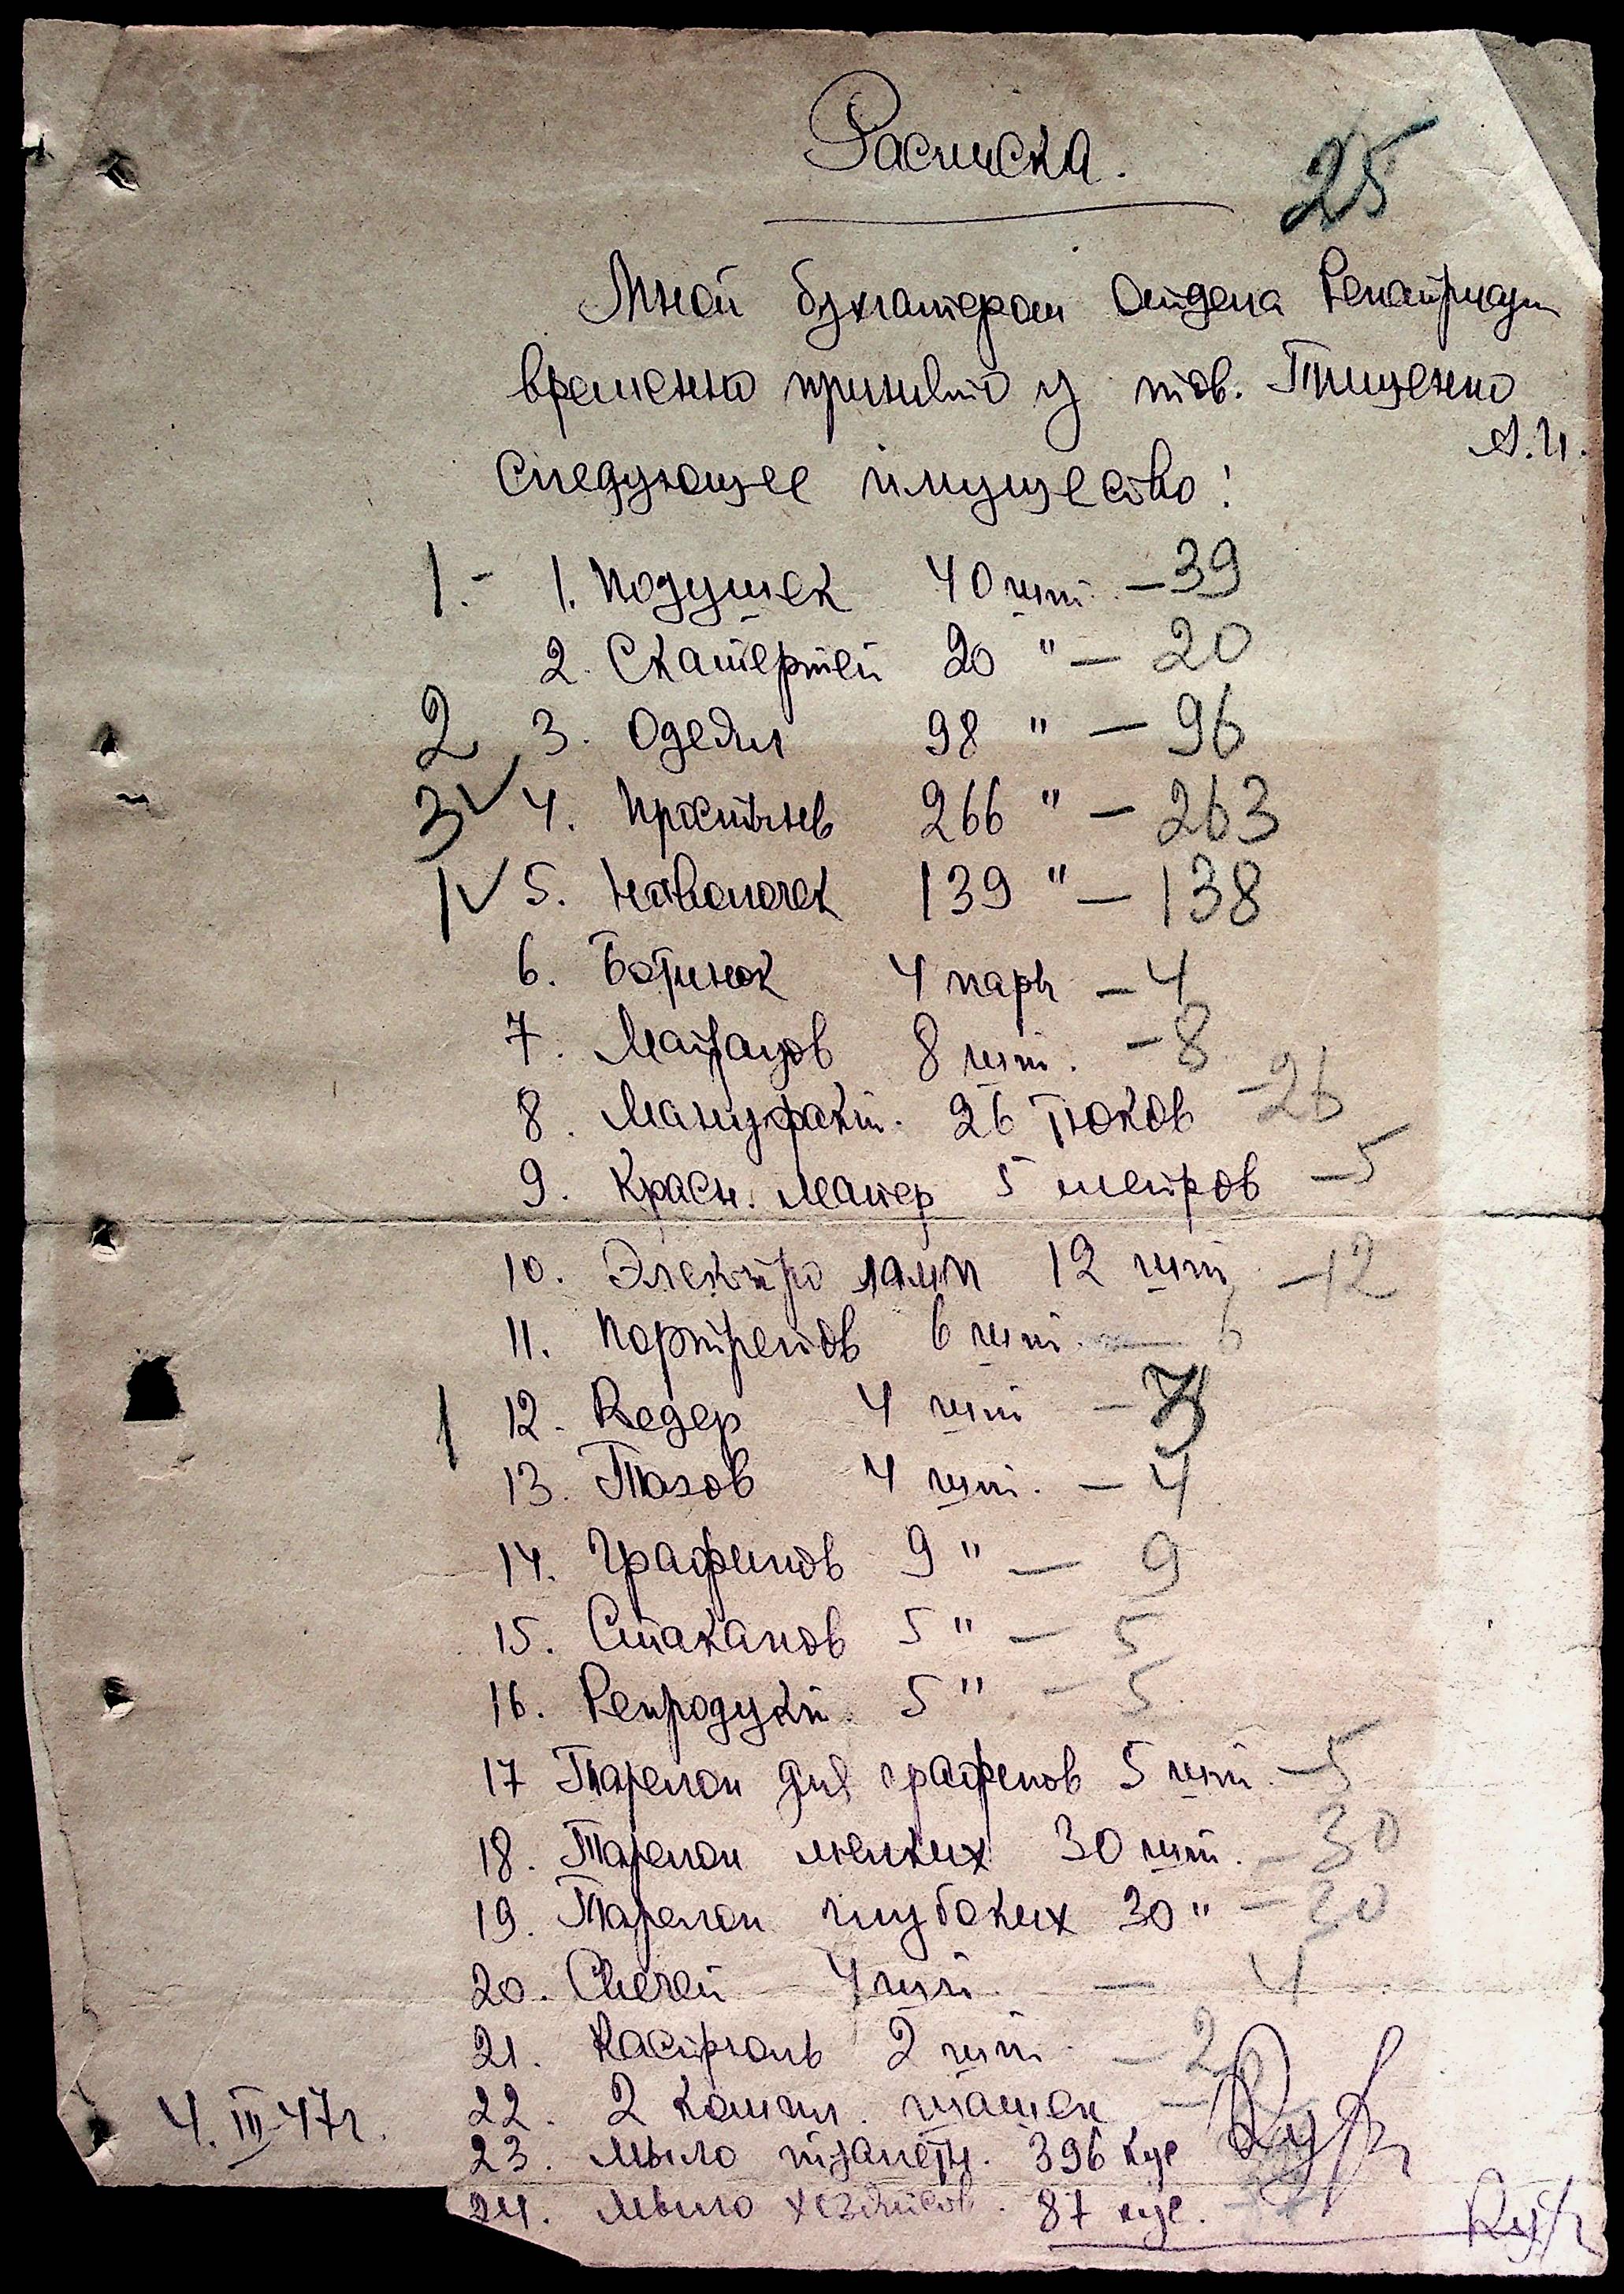 Расписка.
25
Мной бухгалтером Отдела Репатриации
временно принято у тов. Тищенко
А.И.
следующее имущество:
1.- 1. Подушек 40 шт. – 39
2. Скатертей 20 " – 20
2 3. Одеял 98 " – 96
3 √ 4. Простынь 266 " – 263
1 √ 5. Наволочек 139 " – 138
6. Ботинок 4 пары – 4
7. Матрацов 8 шт. – 8
8. Мануфакт. 26 тюков – 26
9. Красн. матер 5 метров – 5
10. Электро ламп 12 шт – 12
11. Портретов 6 шт. – 6
1 12. Ведер 4 шт – 3
13. Тазов 4 шт. – 4
14. Графинов 9 " – 9
15. Стаканов 5 " – 5
16. Репродукт. 5 " – 5
17 Тарелок для графинов 5 шт. – 5
18. Тарелок мелких 30 шт. – 30
19. Тарелок глубоких 30 " – 30
20. Свечей 4 шт. – 4
21. Кастрюль 2 шт. – 2
22. 2 компл. шашек –
4.III-47г.
23. Мыло туалетн. 396 кус
24. Мыло хозяйсов. 87 кус.